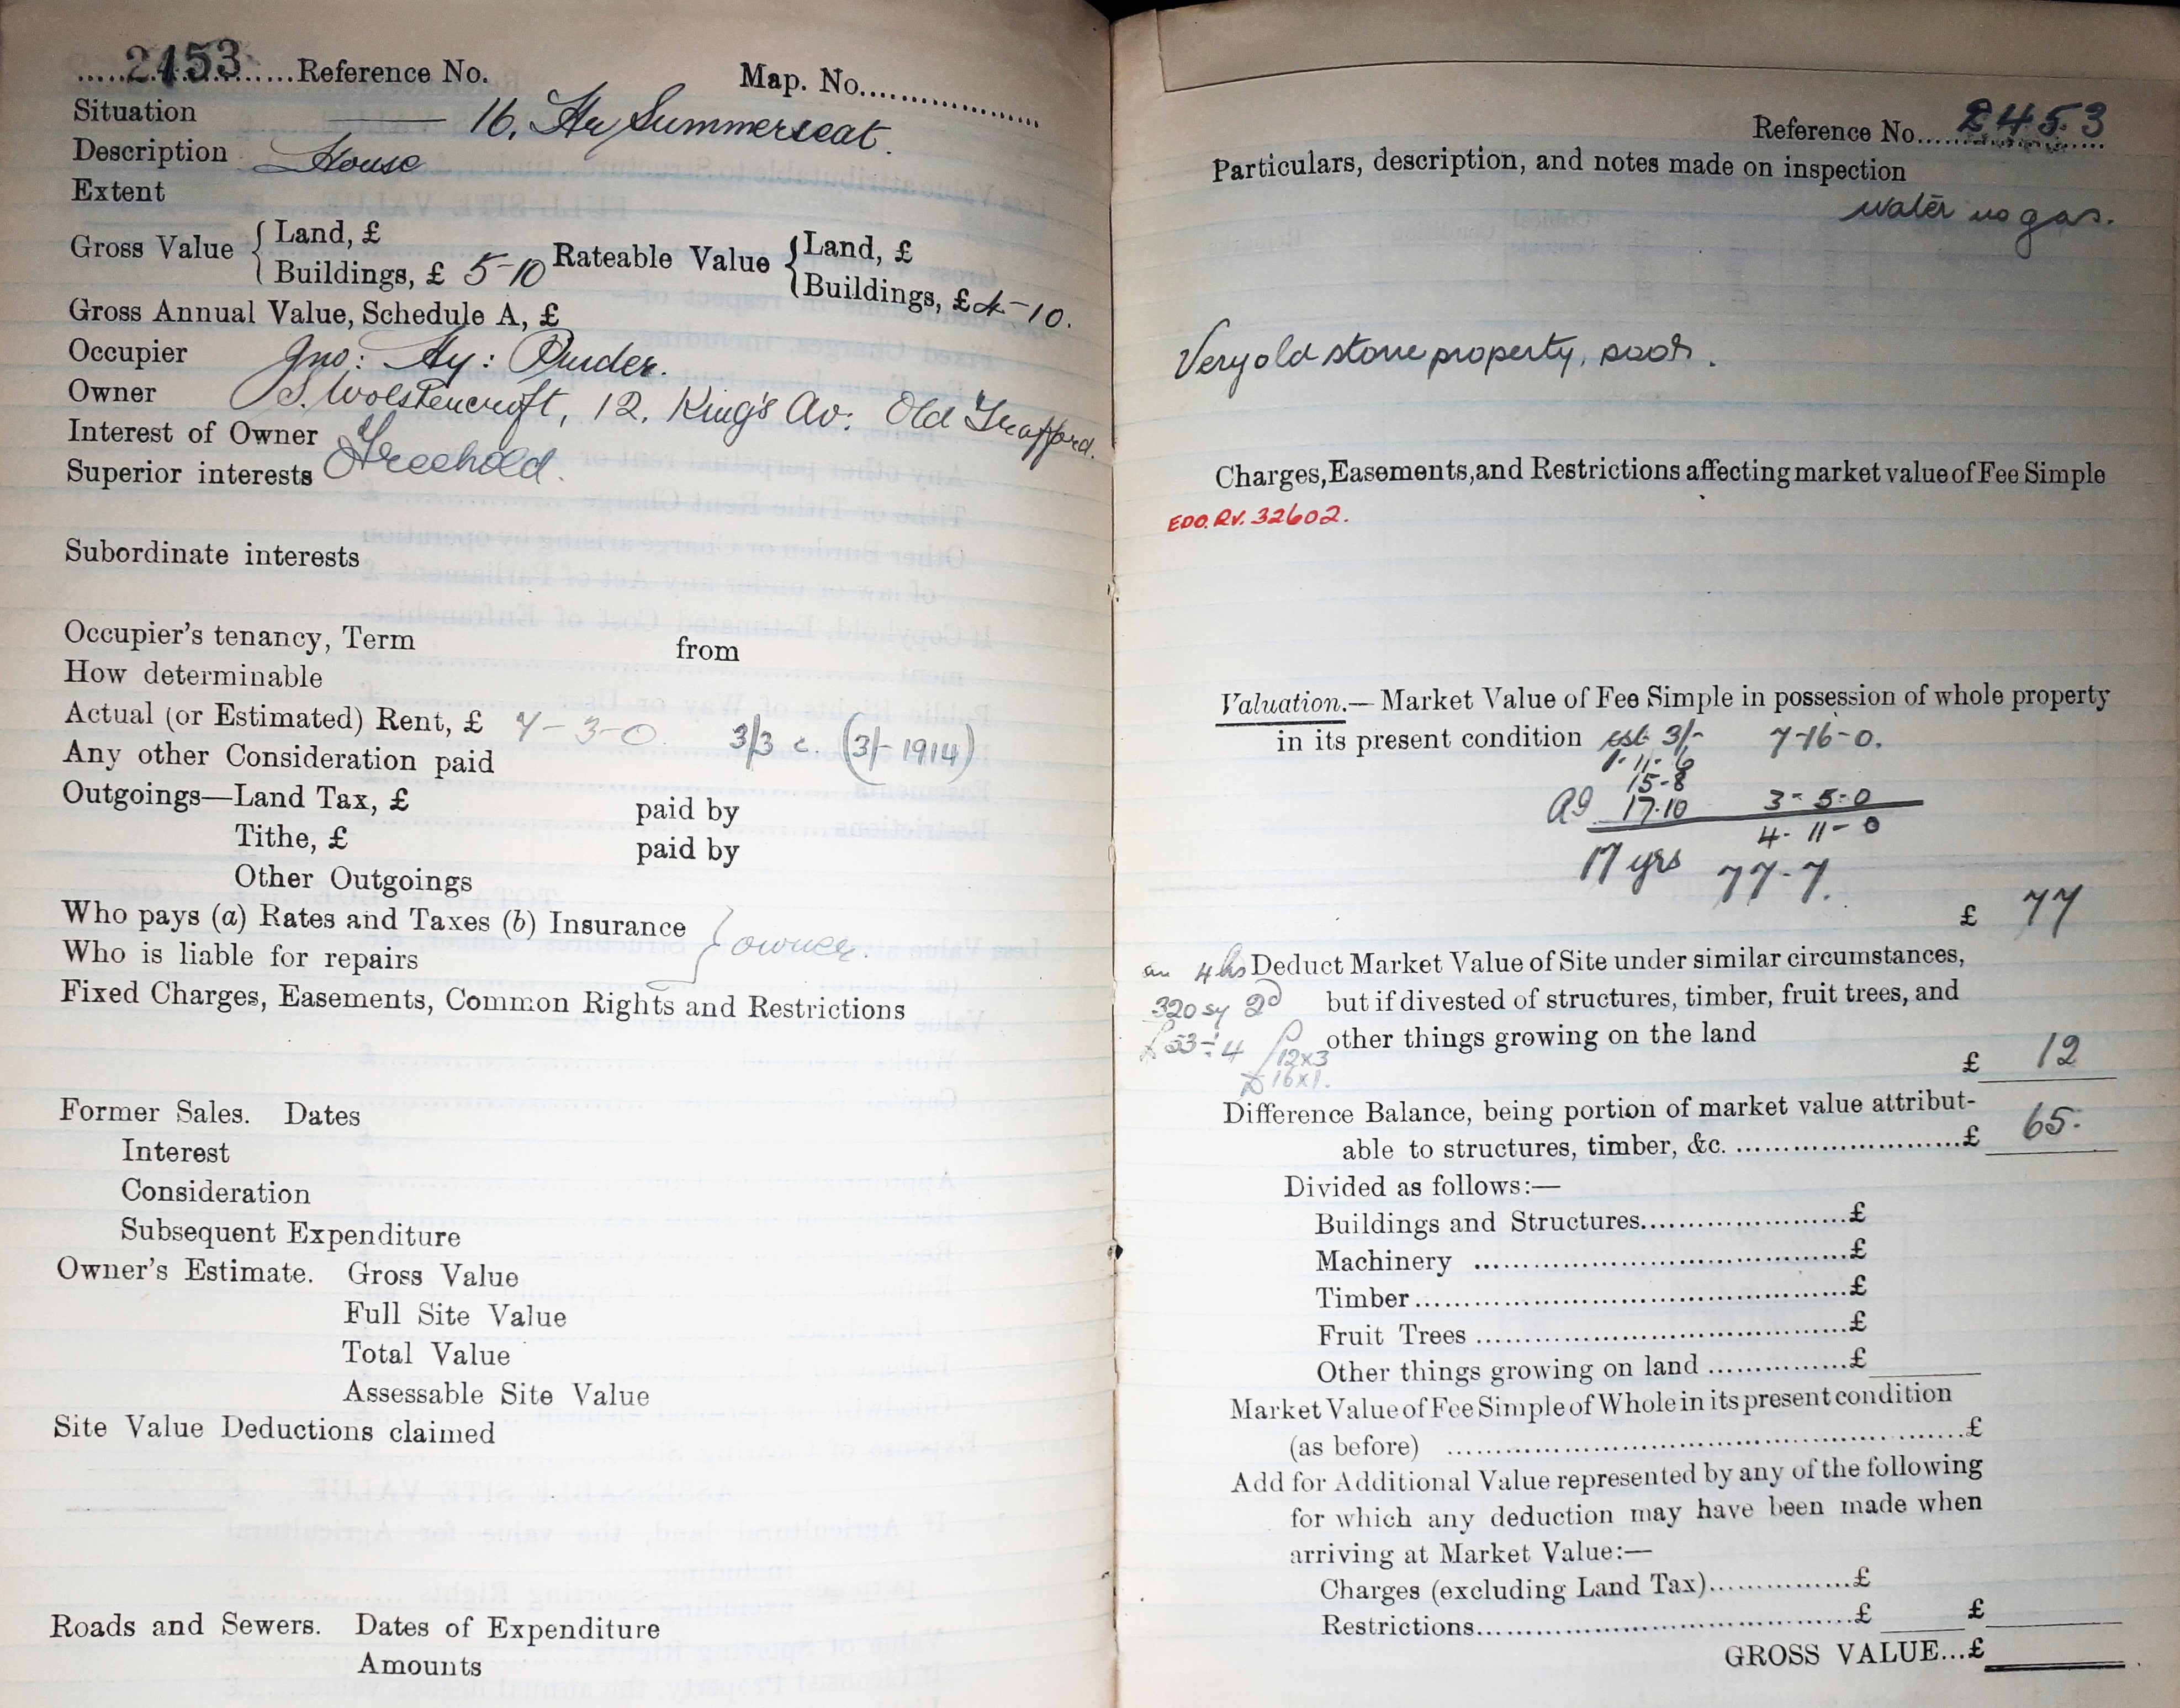 2453 Reference No. Map. No.
Situation —— 16, Hr Summerseat.
Description House
Extent
Gross Value { Land, £ Rateable Value { Land, £
Buildings, £ 5-10 Buildings, £ 4-10.
Gross Annual Value, Schedule A, £
Occupier Jno: Hy: Purder.
Owner S. Wolstencroft, 12, King's Av: Old Trafford.
Interest of Owner Freehold.
Superior interests
Subordinate interests
Occupier's tenancy, Term from
How determinable
Actual (or Estimated) Rent, £ 7-3-0 3/3 c. (3/- 1914)
Any other Consideration paid
Outgoings—Land Tax, £ paid by
Tithe, £ paid by
Other Outgoings
Who pays (a) Rates and Taxes (b) Insurance } owner.
Who is liable for repairs
Fixed Charges, Easements, Common Rights and Restrictions
Former Sales. Dates
Interest
Consideration
Subsequent Expenditure
Owner's Estimate. Gross Value
Full Site Value
Total Value
Assessable Site Value
Site Value Deductions claimed
Roads and Sewers. Dates of Expenditure
Amounts
Reference No. 2453
Particulars, description, and notes made on inspection
water no gas.
Very old stone property, poor.
Charges, Easements, and Restrictions affecting market value of Fee Simple
EDO. RV. 32602.
Valuation.— Market Value of Fee Simple in possession of whole property
in its present condition est. 3/- 7-16-0.
1-11-6
15-8
17-10 3-5-0
4-11-0
17 yrs 77-7.
£ 77
4 hs Deduct Market Value of Site under similar circumstances,
320 sy 2d but if divested of structures, timber, fruit trees, and
£53÷4 other things growing on the land
12x3
16x1. £ 12
Difference Balance, being portion of market value attribut-
able to structures, timber, &c. £ 65.
Divided as follows:—
Buildings and Structures £
Machinery £
Timber £
Fruit Trees £
Other things growing on land £
Market Value of Fee Simple of Whole in its present condition
(as before) £
Add for Additional Value represented by any of the following
for which any deduction may have been made when
arriving at Market Value:—
Charges (excluding Land Tax) £
Restrictions £ £
GROSS VALUE... £